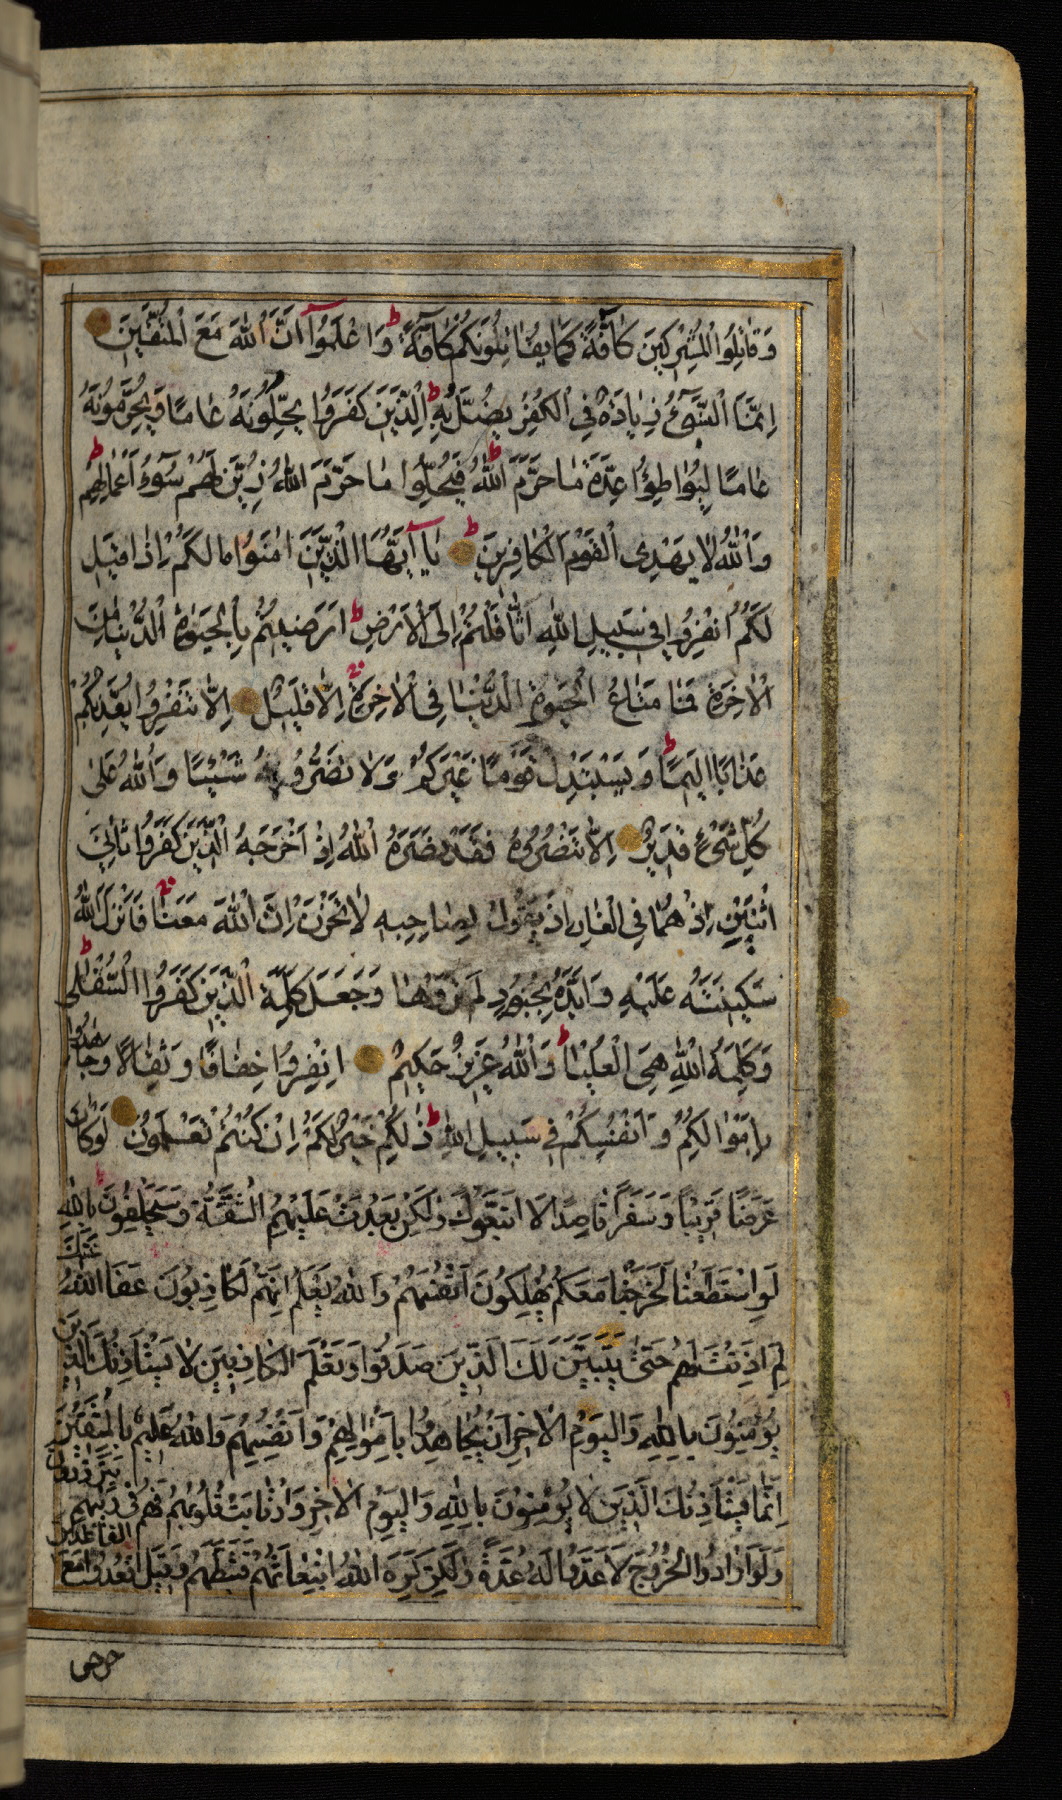 وَقَاتِلُوا الْمُشْرِكِينَ كَافَّةً كَمَا يُقَاتِلُونَكُمْ كَافَّةً ط وَاعْلَمُوا أَنَّ اللهَ مَعَ الْمُتَّقِينَ
اِنَّمَا النَّسِيءُ زِيَادَةٌ فِي الْكُفْرِ يُضَلُّ بِهِ الَّذِينَ كَفَرُوا يُحِلُّونَهُ عَامًا وَيُحَرِّمُونَهُ
عَامًا لِيُوَاطِئُوا عِدَّةَ مَا حَرَّمَ اللهُ فَيُحِلُّوا مَا حَرَّمَ اللهُ زُيِّنَ لَهُمْ سُوءُ أَعْمَالِهِمْ ط
وَاللهُ لَا يَهْدِي الْقَوْمَ الْكَافِرِينَ ط يَا أَيُّهَا الَّذِينَ اٰمَنُوا مَا لَكُمْ اِذَا قِيلَ
لَكُمُ انْفِرُوا فِي سَبِيلِ اللهِ اثَّاقَلْتُمْ اِلَى الْأَرْضِ ط اَرَضِيتُمْ بِالْحَيٰوةِ الدُّنْيَا مِنَ
الْاٰخِرَةِ فَمَا مَتَاعُ الْحَيٰوةِ الدُّنْيَا فِي الْاٰخِرَةِ اِلَّا قَلِيلٌ اِلَّا تَنْفِرُوا يُعَذِّبْكُمْ
عَذَابًا اَلِيمًا ط وَيَسْتَبْدِلْ قَوْمًا غَيْرَكُمْ وَلَا تَضُرُّوهُ شَيْئًا وَاللهُ عَلَى
كُلِّ شَيْءٍ قَدِيرٌ اِلَّا تَنْصُرُوهُ فَقَدْ نَصَرَهُ اللهُ اِذْ اَخْرَجَهُ الَّذِينَ كَفَرُوا ثَانِيَ
اثْنَيْنِ اِذْ هُمَا فِي الْغَارِ اِذْ يَقُولُ لِصَاحِبِهِ لَا تَحْزَنْ اِنَّ اللهَ مَعَنَا فَاَنْزَلَ اللهُ
سَكِينَتَهُ عَلَيْهِ وَاَيَّدَهُ بِجُنُودٍ لَمْ تَرَوْهَا وَجَعَلَ كَلِمَةَ الَّذِينَ كَفَرُوا السُّفْلَى ط
وَكَلِمَةُ اللهِ هِيَ الْعُلْيَا ط وَاللهُ عَزِيزٌ حَكِيمٌ اِنْفِرُوا خِفَافًا وَثِقَالًا وَجَاهِدُوا
بِاَمْوَالِكُمْ وَاَنْفُسِكُمْ فِي سَبِيلِ اللهِ ط ذٰلِكُمْ خَيْرٌ لَكُمْ اِنْ كُنْتُمْ تَعْلَمُونَ لَوْ كَانَ
عَرَضًا قَرِيبًا وَسَفَرًا قَاصِدًا لَاتَّبَعُوكَ وَلٰكِنْ بَعُدَتْ عَلَيْهِمُ الشُّقَّةُ وَسَيَحْلِفُونَ بِاللهِ
لَوِ اسْتَطَعْنَا لَخَرَجْنَا مَعَكُمْ يُهْلِكُونَ اَنْفُسَهُمْ وَاللهُ يَعْلَمُ اِنَّهُمْ لَكَاذِبُونَ عَفَا اللهُ عَنْكَ
لِمَ اَذِنْتَ لَهُمْ حَتَّى يَتَبَيَّنَ لَكَ الَّذِينَ صَدَقُوا وَتَعْلَمَ الْكَاذِبِينَ لَا يَسْتَأْذِنُكَ الَّذِينَ
يُؤْمِنُونَ بِاللهِ وَالْيَوْمِ الْاٰخِرِ اَنْ يُجَاهِدُوا بِاَمْوَالِهِمْ وَاَنْفُسِهِمْ وَاللهُ عَلِيمٌ بِالْمُتَّقِينَ
اِنَّمَا يَسْتَأْذِنُكَ الَّذِينَ لَا يُؤْمِنُونَ بِاللهِ وَالْيَوْمِ الْاٰخِرِ وَارْتَابَتْ قُلُوبُهُمْ فَهُمْ فِي رَيْبِهِمْ يَتَرَدَّدُونَ
وَلَوْ اَرَادُوا الْخُرُوجَ لَاَعَدُّوا لَهُ عُدَّةً وَلٰكِنْ كَرِهَ اللهُ انْبِعَاثَهُمْ فَثَبَّطَهُمْ وَقِيلَ اقْعُدُوا مَعَ الْقَاعِدِينَ